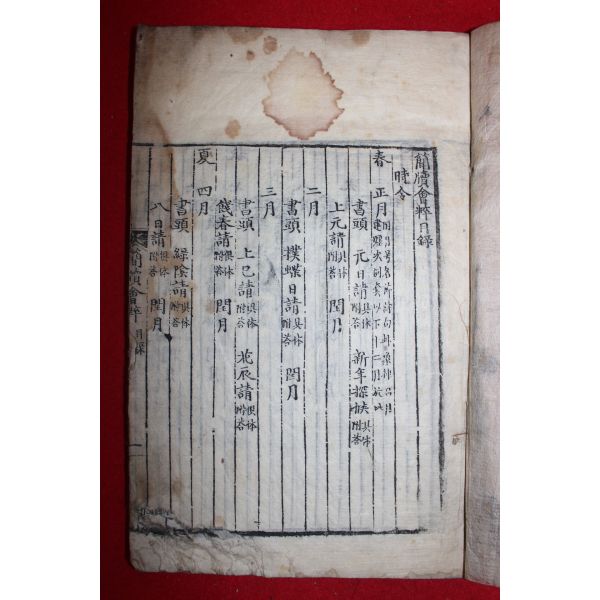 簡牘會粹目錄
時令
春 正月
書頭 元日請具体附答 新年探候具体附答
上元請具体附答 閏月
二月
書頭 撲蝶日請具体附答 閏月
三月
書頭 上巳請具体附答 花辰請具体附答
餞春請具体附答 閏月
夏 四月
書頭 綠陰請具体附答
八日請具体附答 閏月
簡牘會粹 目錄 一